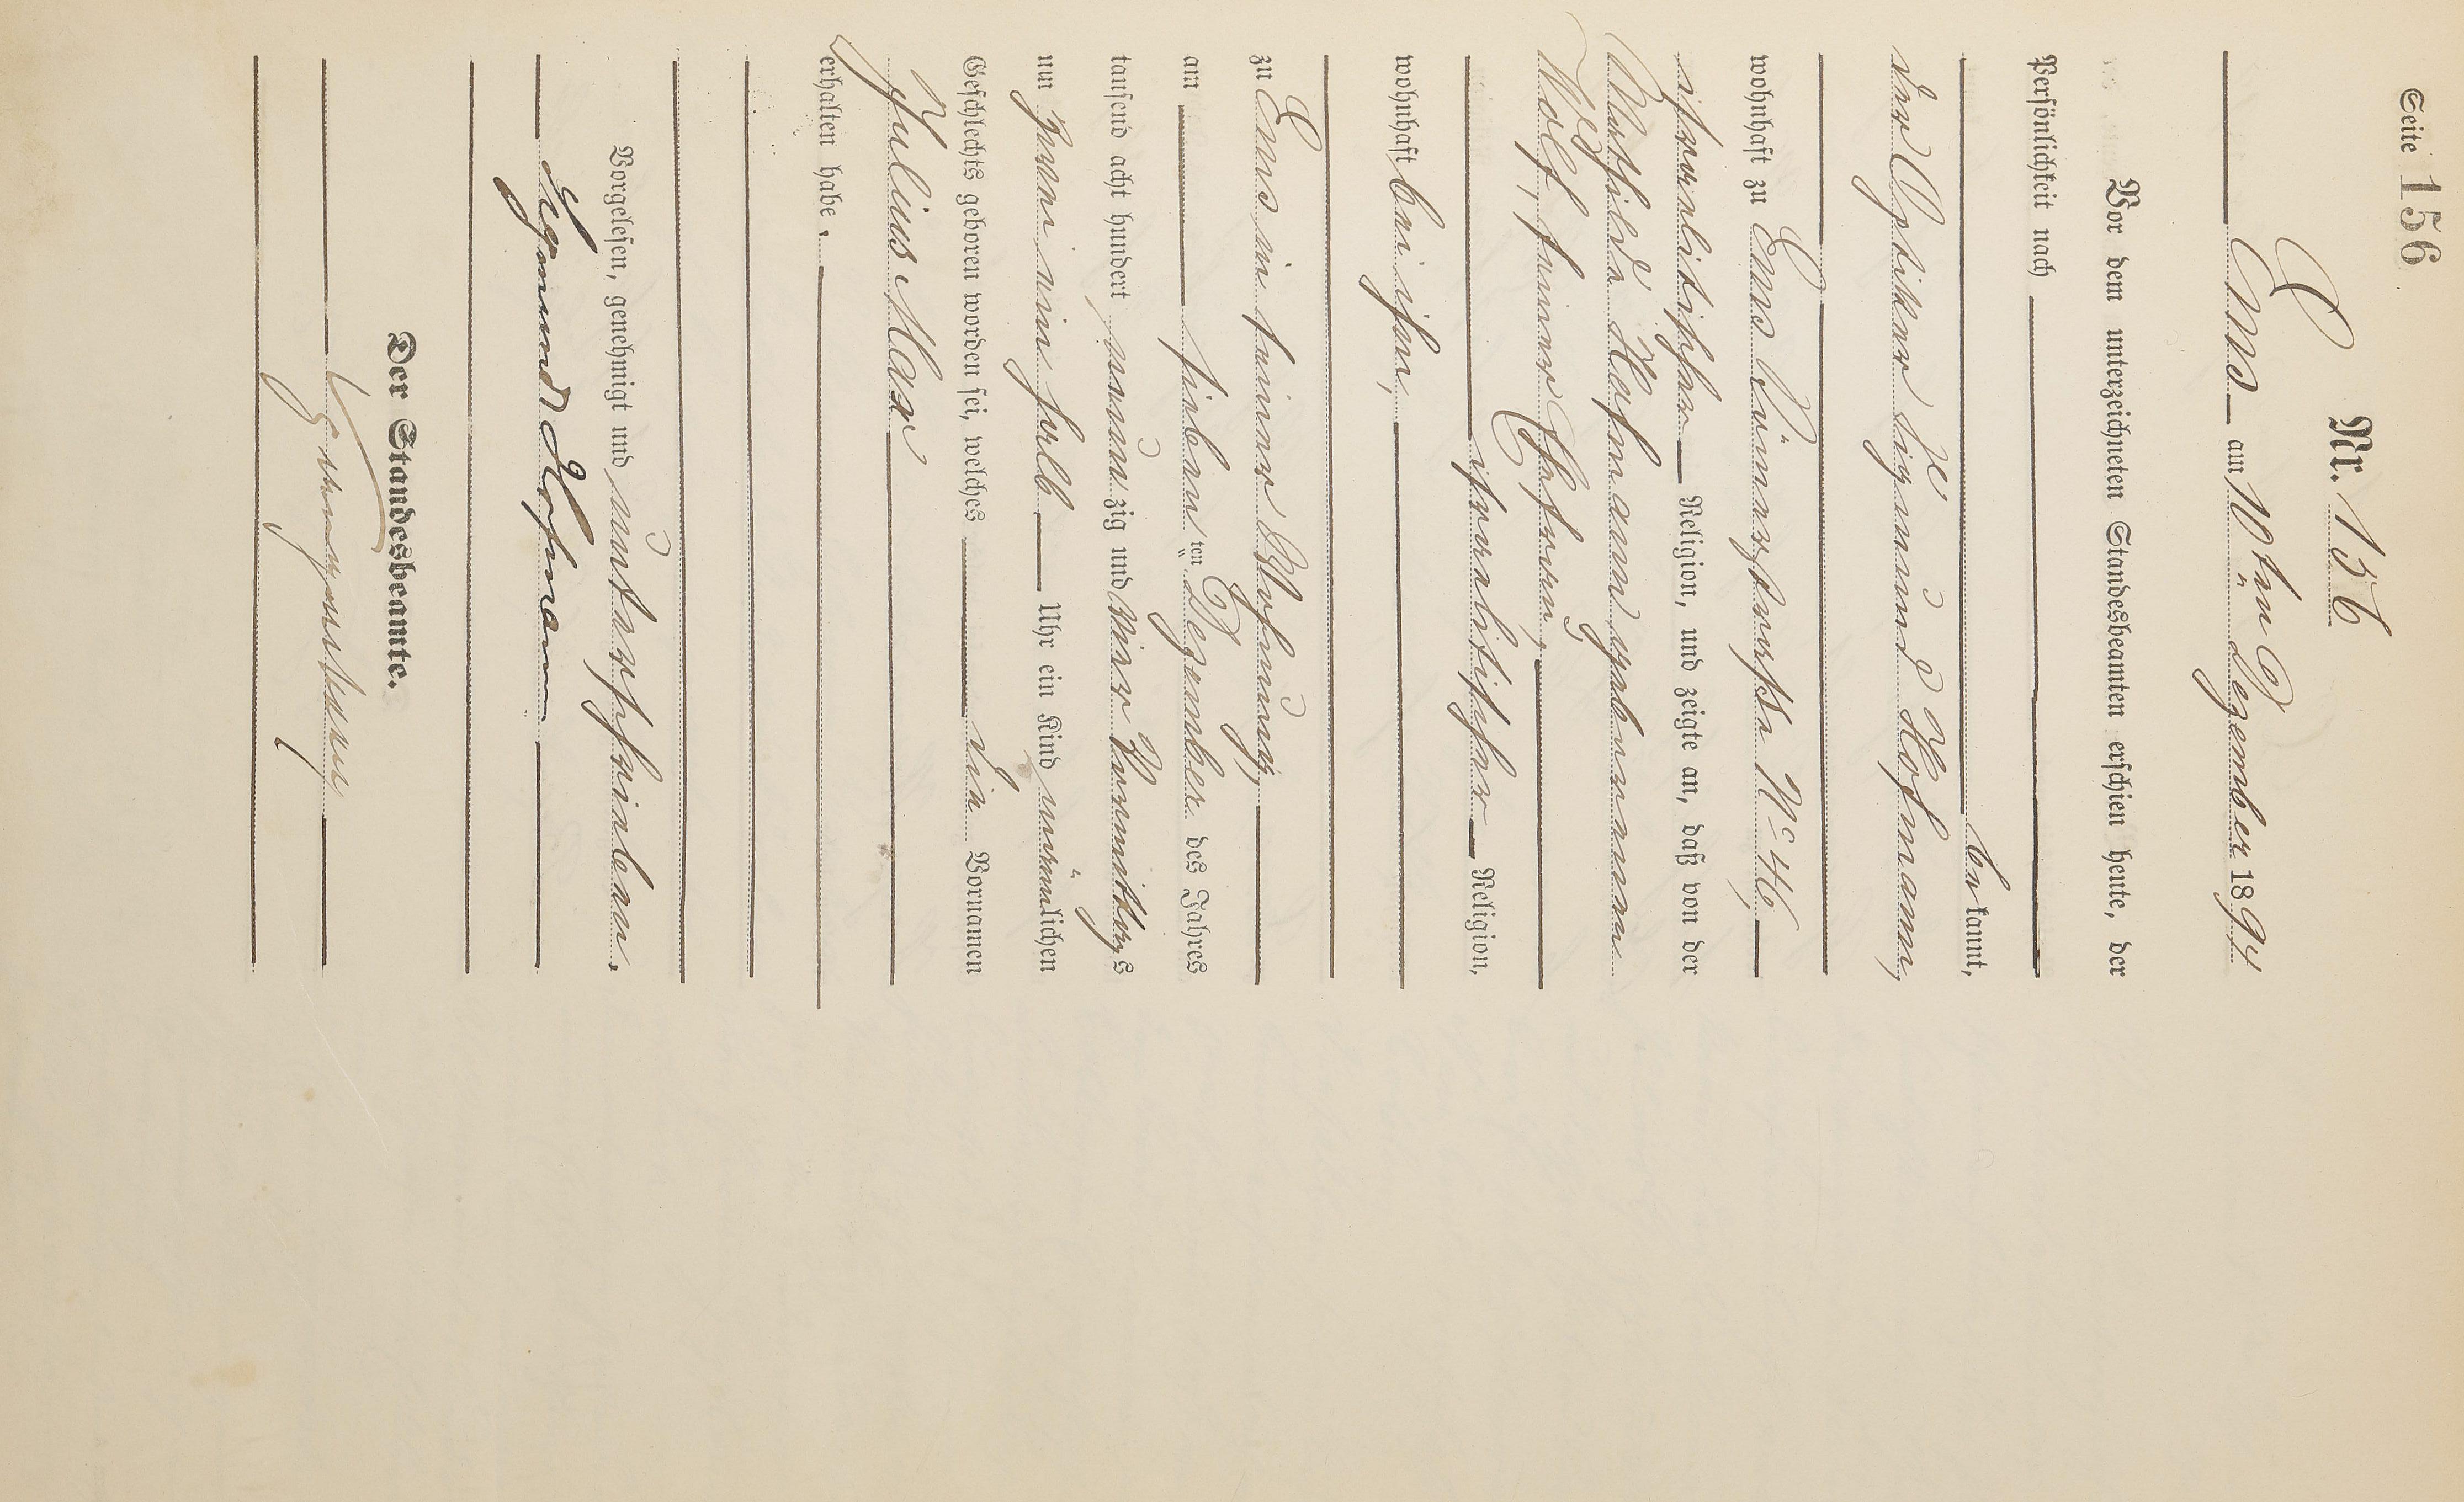 Seite 156
Nr. 156
Ems am 10ten Dezember 1894
Vor dem unterzeichneten Standesbeamten erschien heute, der
Persönlichkeit nach
bekannt,
der Optiker Sigmund Hofmann,
wohnhaft zu Ems Römerstraße No 46,
israelitischer Religion, und zeigte an, daß von der
Mathilde Hofmann gebornenen
Wolf, seiner Ehefrau,
israelitischer Religion,
wohnhaft bei ihm,
zu Ems in seiner Wohnung,
am siebenten Dezember des Jahres
tausend acht hundert neunzig und vier Vormittags
um zwei ein halb Uhr ein Kind männlichen
Geschlechts geboren worden sei, welches die Vornamen
Julius Max
erhalten habe.
Vorgelesen, genehmigt und unterschrieben.
Sigmund Hofmann
Der Standesbeamte.